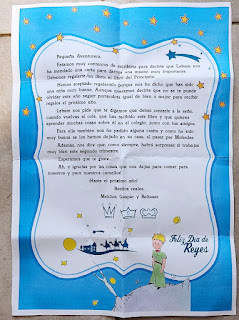 Pequeña Aventurera:
Estamos muy contentos de escribirte para decirte que Lebane nos
ha mandado una carta para darnos una misión muy importante.
Debemos regalarte los libros el libro del Principito.
Hemos aceptado regalártelo porque nos ha dicho que has sido
una niña muy buena. Aunque queremos decirte que no se te puede
olvidar este año seguir portándote igual de bien o mejor para recibir
regalos el próximo año.
Lebane nos pide que te digamos que debes contarle a la seño,
cuando vuelvas al cole, que has recibido este libro y que quieres
aprender muchas cosas sobre él en el colegio, junto con tus amigos.
Para ella también nos ha pedido alguna cosita y como ha sido
muy buena se los hemos dejado en su casa, al pasar por
Además, nos dice que, como siempre, habrá sorpresas si trabajas
muy bien este segundo trimestre.
Esperamos que te guste.
Ah, y gracias por las cosas que nos dejas para comer para
nosotros y para nuestros camellos!
Hasta el próximo año!
Besitos reales.
Melchor, Gaspar y Baltasar
Feliz Día de
Reyes